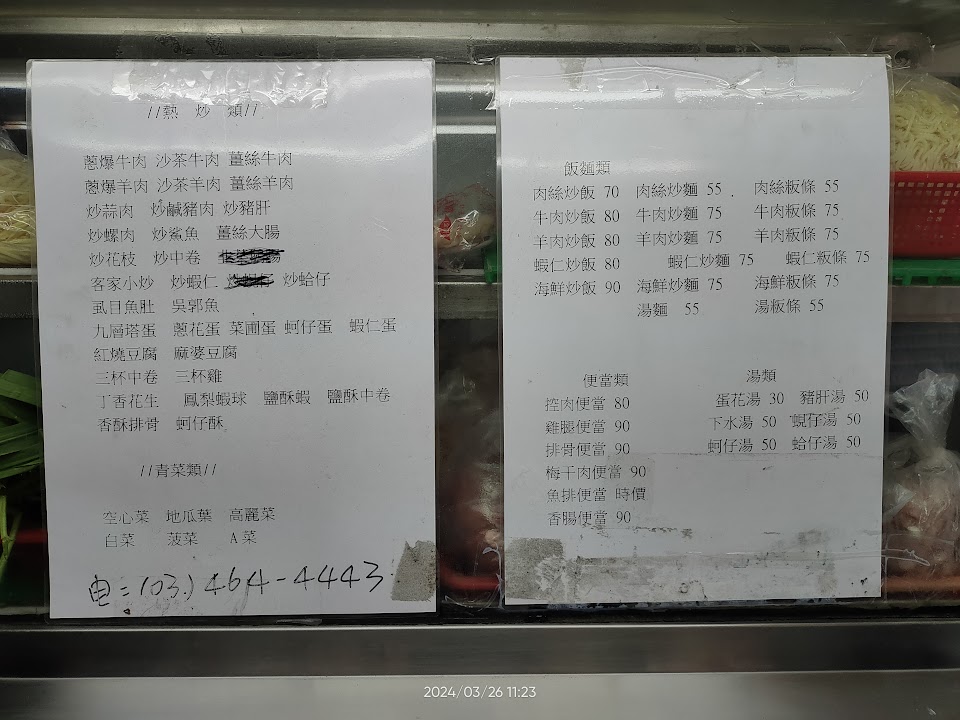 //熱 炒 類//
蔥爆牛肉 沙茶牛肉 薑絲牛肉
蔥爆羊肉 沙茶羊肉 薑絲羊肉
炒蒜肉 炒鹹豬肉 炒豬肝
炒螺肉 炒鯊魚 薑絲大腸
炒花枝 炒中卷
客家小炒 炒蝦仁 炒蛤仔
虱目魚肚 吳郭魚
九層塔蛋 蔥花蛋 菜圃蛋 蚵仔蛋 蝦仁蛋
紅燒豆腐 麻婆豆腐
三杯中卷 三杯雞
丁香花生 鳳梨蝦球 鹽酥蝦 鹽酥中卷
香酥排骨 蚵仔酥
//青菜類//
空心菜 地瓜葉 高麗菜
白菜 菠菜 A菜
电:(03.)464-4443
飯麵類
肉絲炒飯 70 肉絲炒麵 55 . 肉絲粄條 55
牛肉炒飯 80 牛肉炒麵 75 牛肉粄條 75
羊肉炒飯 80 羊肉炒麵 75 羊肉粄條 75
蝦仁炒飯 80 蝦仁炒麵 75 蝦仁粄條 75
海鮮炒飯 90 海鮮炒麵 75 海鮮粄條 75
湯麵 55 湯粄條 55
便當類
控肉便當 80
雞腿便當 90
排骨便當 90
梅干肉便當 90
魚排便當 時價
香腸便當 90
湯類
蛋花湯 30 豬肝湯 50
下水湯 50 蜆仔湯 50
蚵仔湯 50 蛤仔湯 50
2024/03/26 11:23